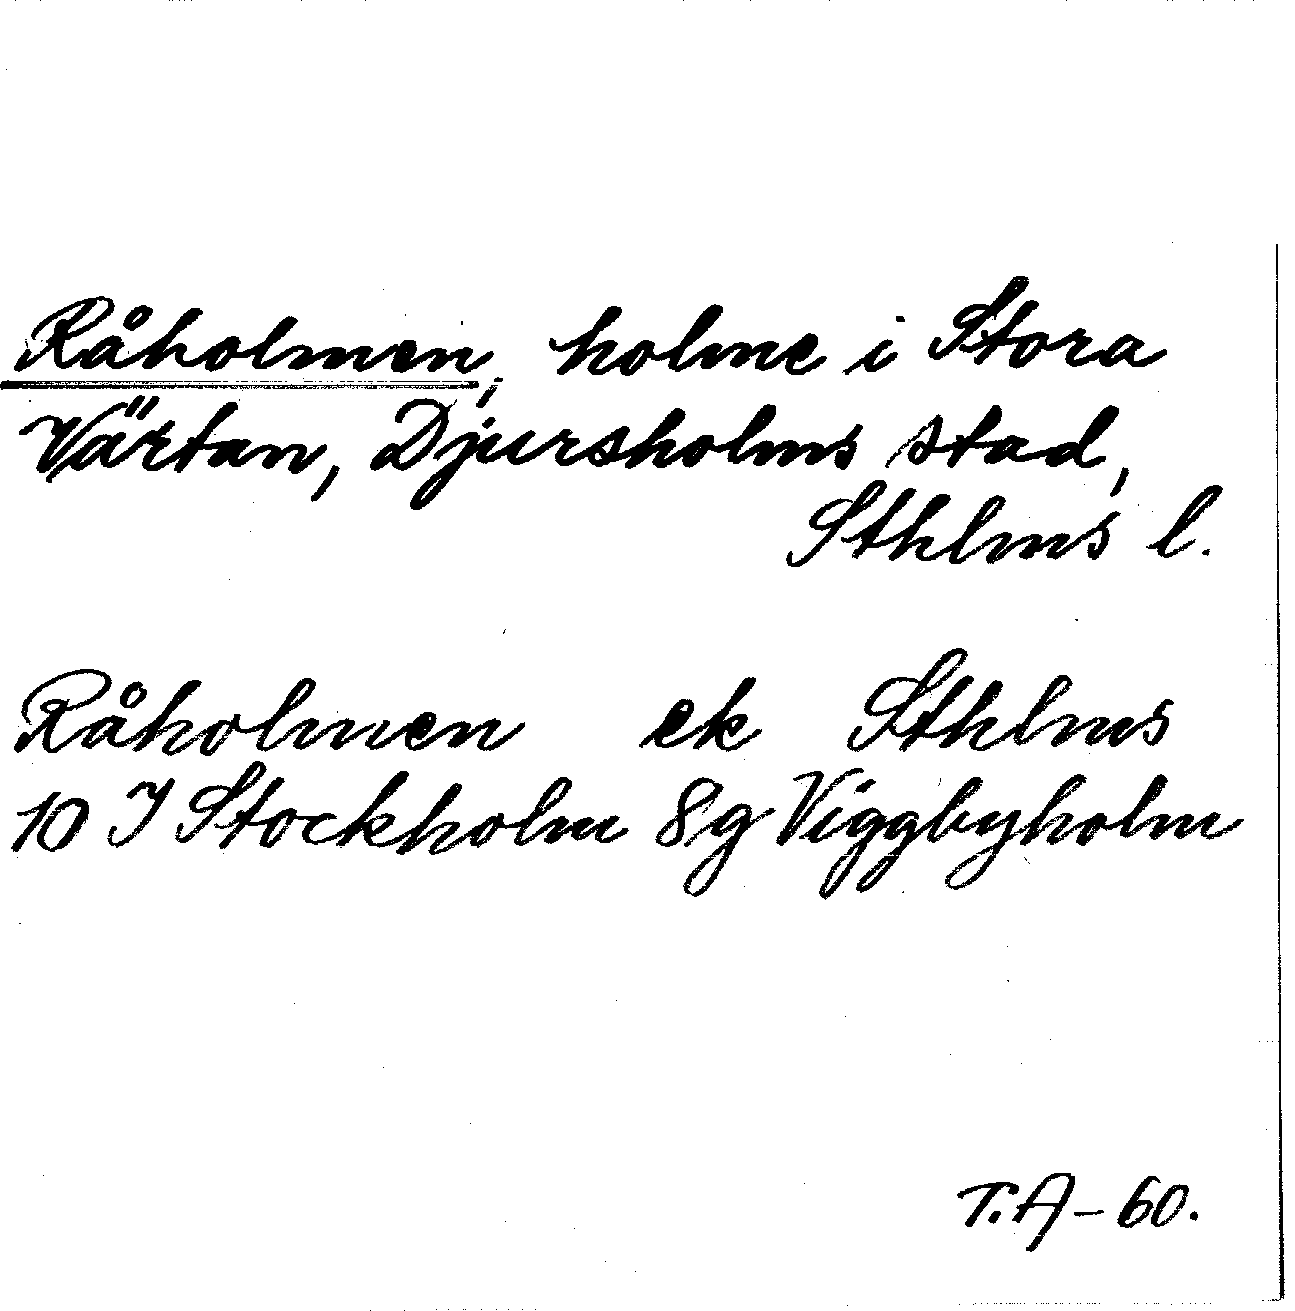 Råholmen, holme i Stora
Värtan, Djursholms stad,
Sthlms l.
Råholmen ek Sthlms
10 I Stockholm 8g Viggbyholm
T.A – 60.